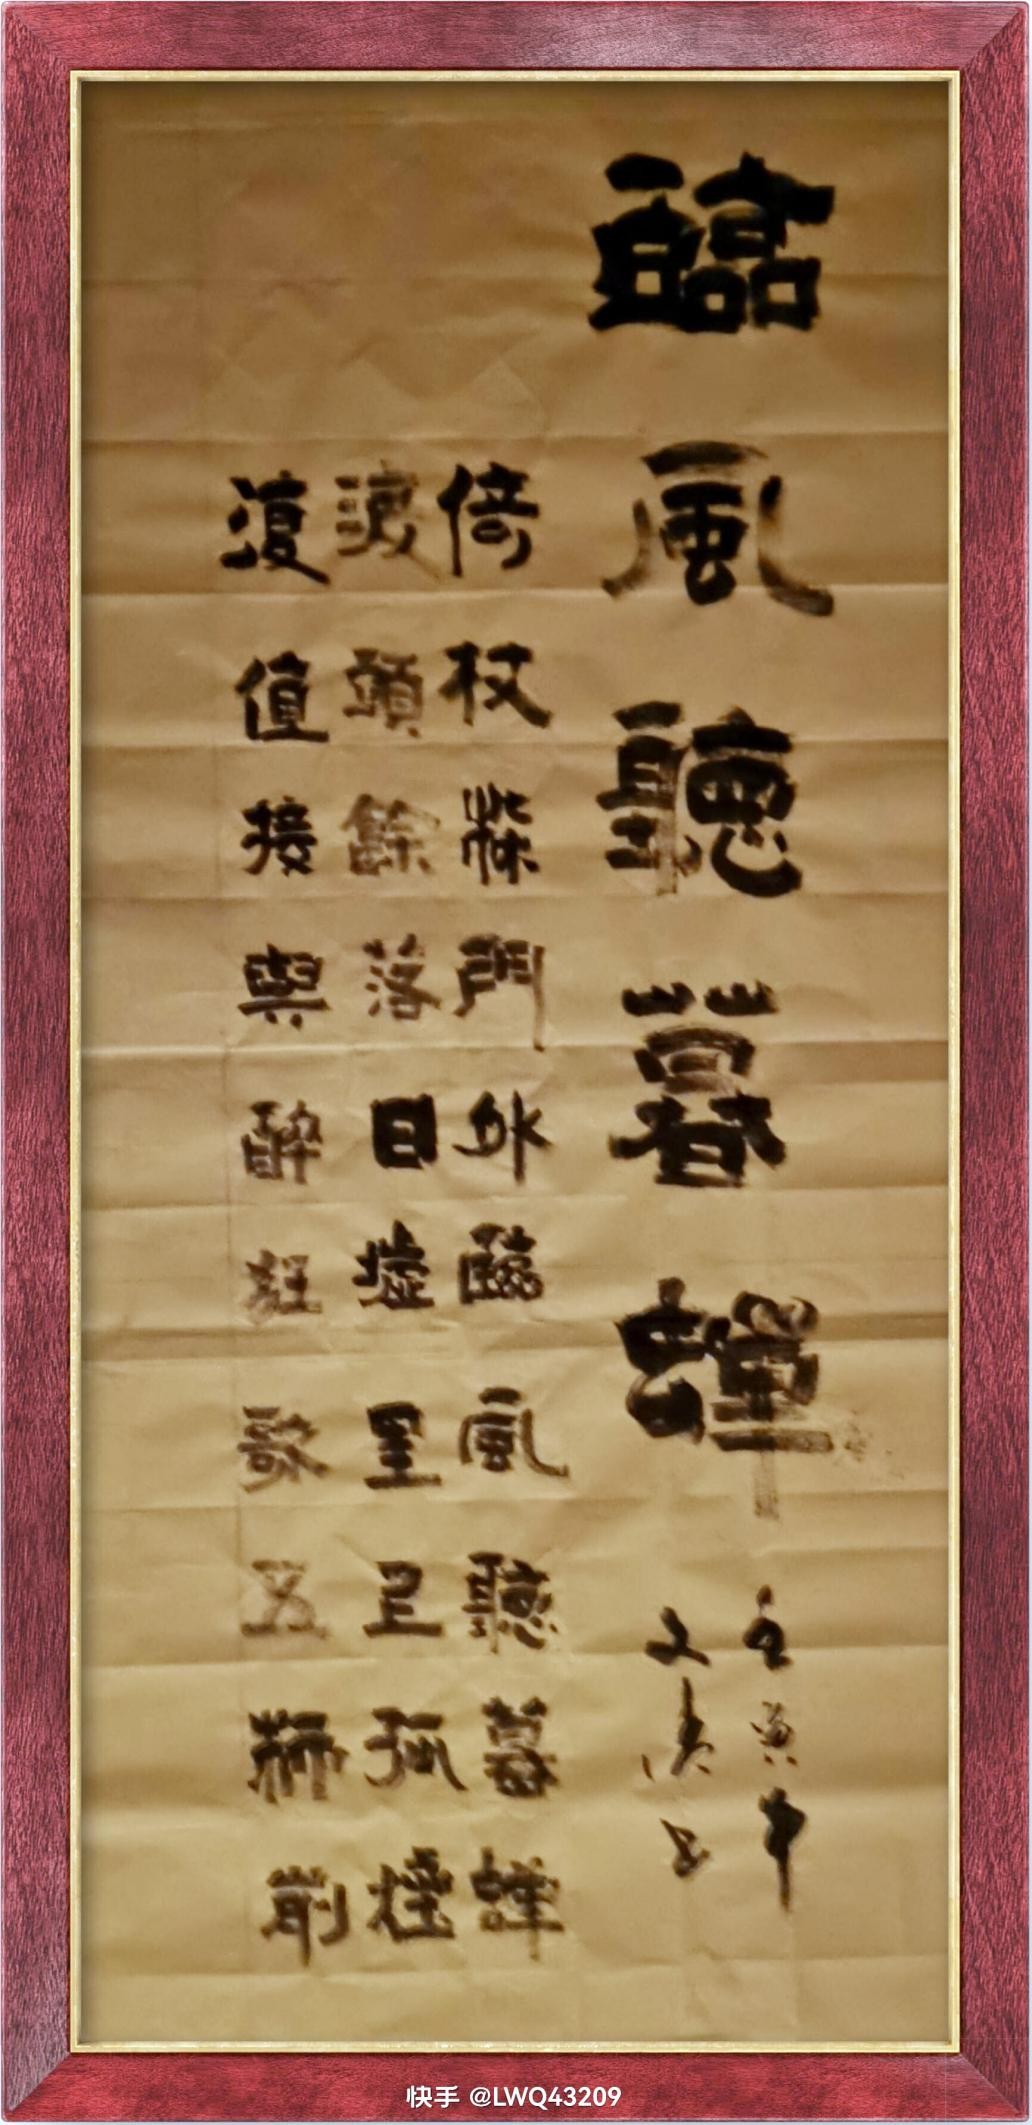 臨風聽暮蟬
壬寅中
文 书
倚杖柴門外臨風聽暮蟬
渡頭餘落日墟里上孤煙
復值接輿醉狂歌五柳前
快手 @LWQ43209